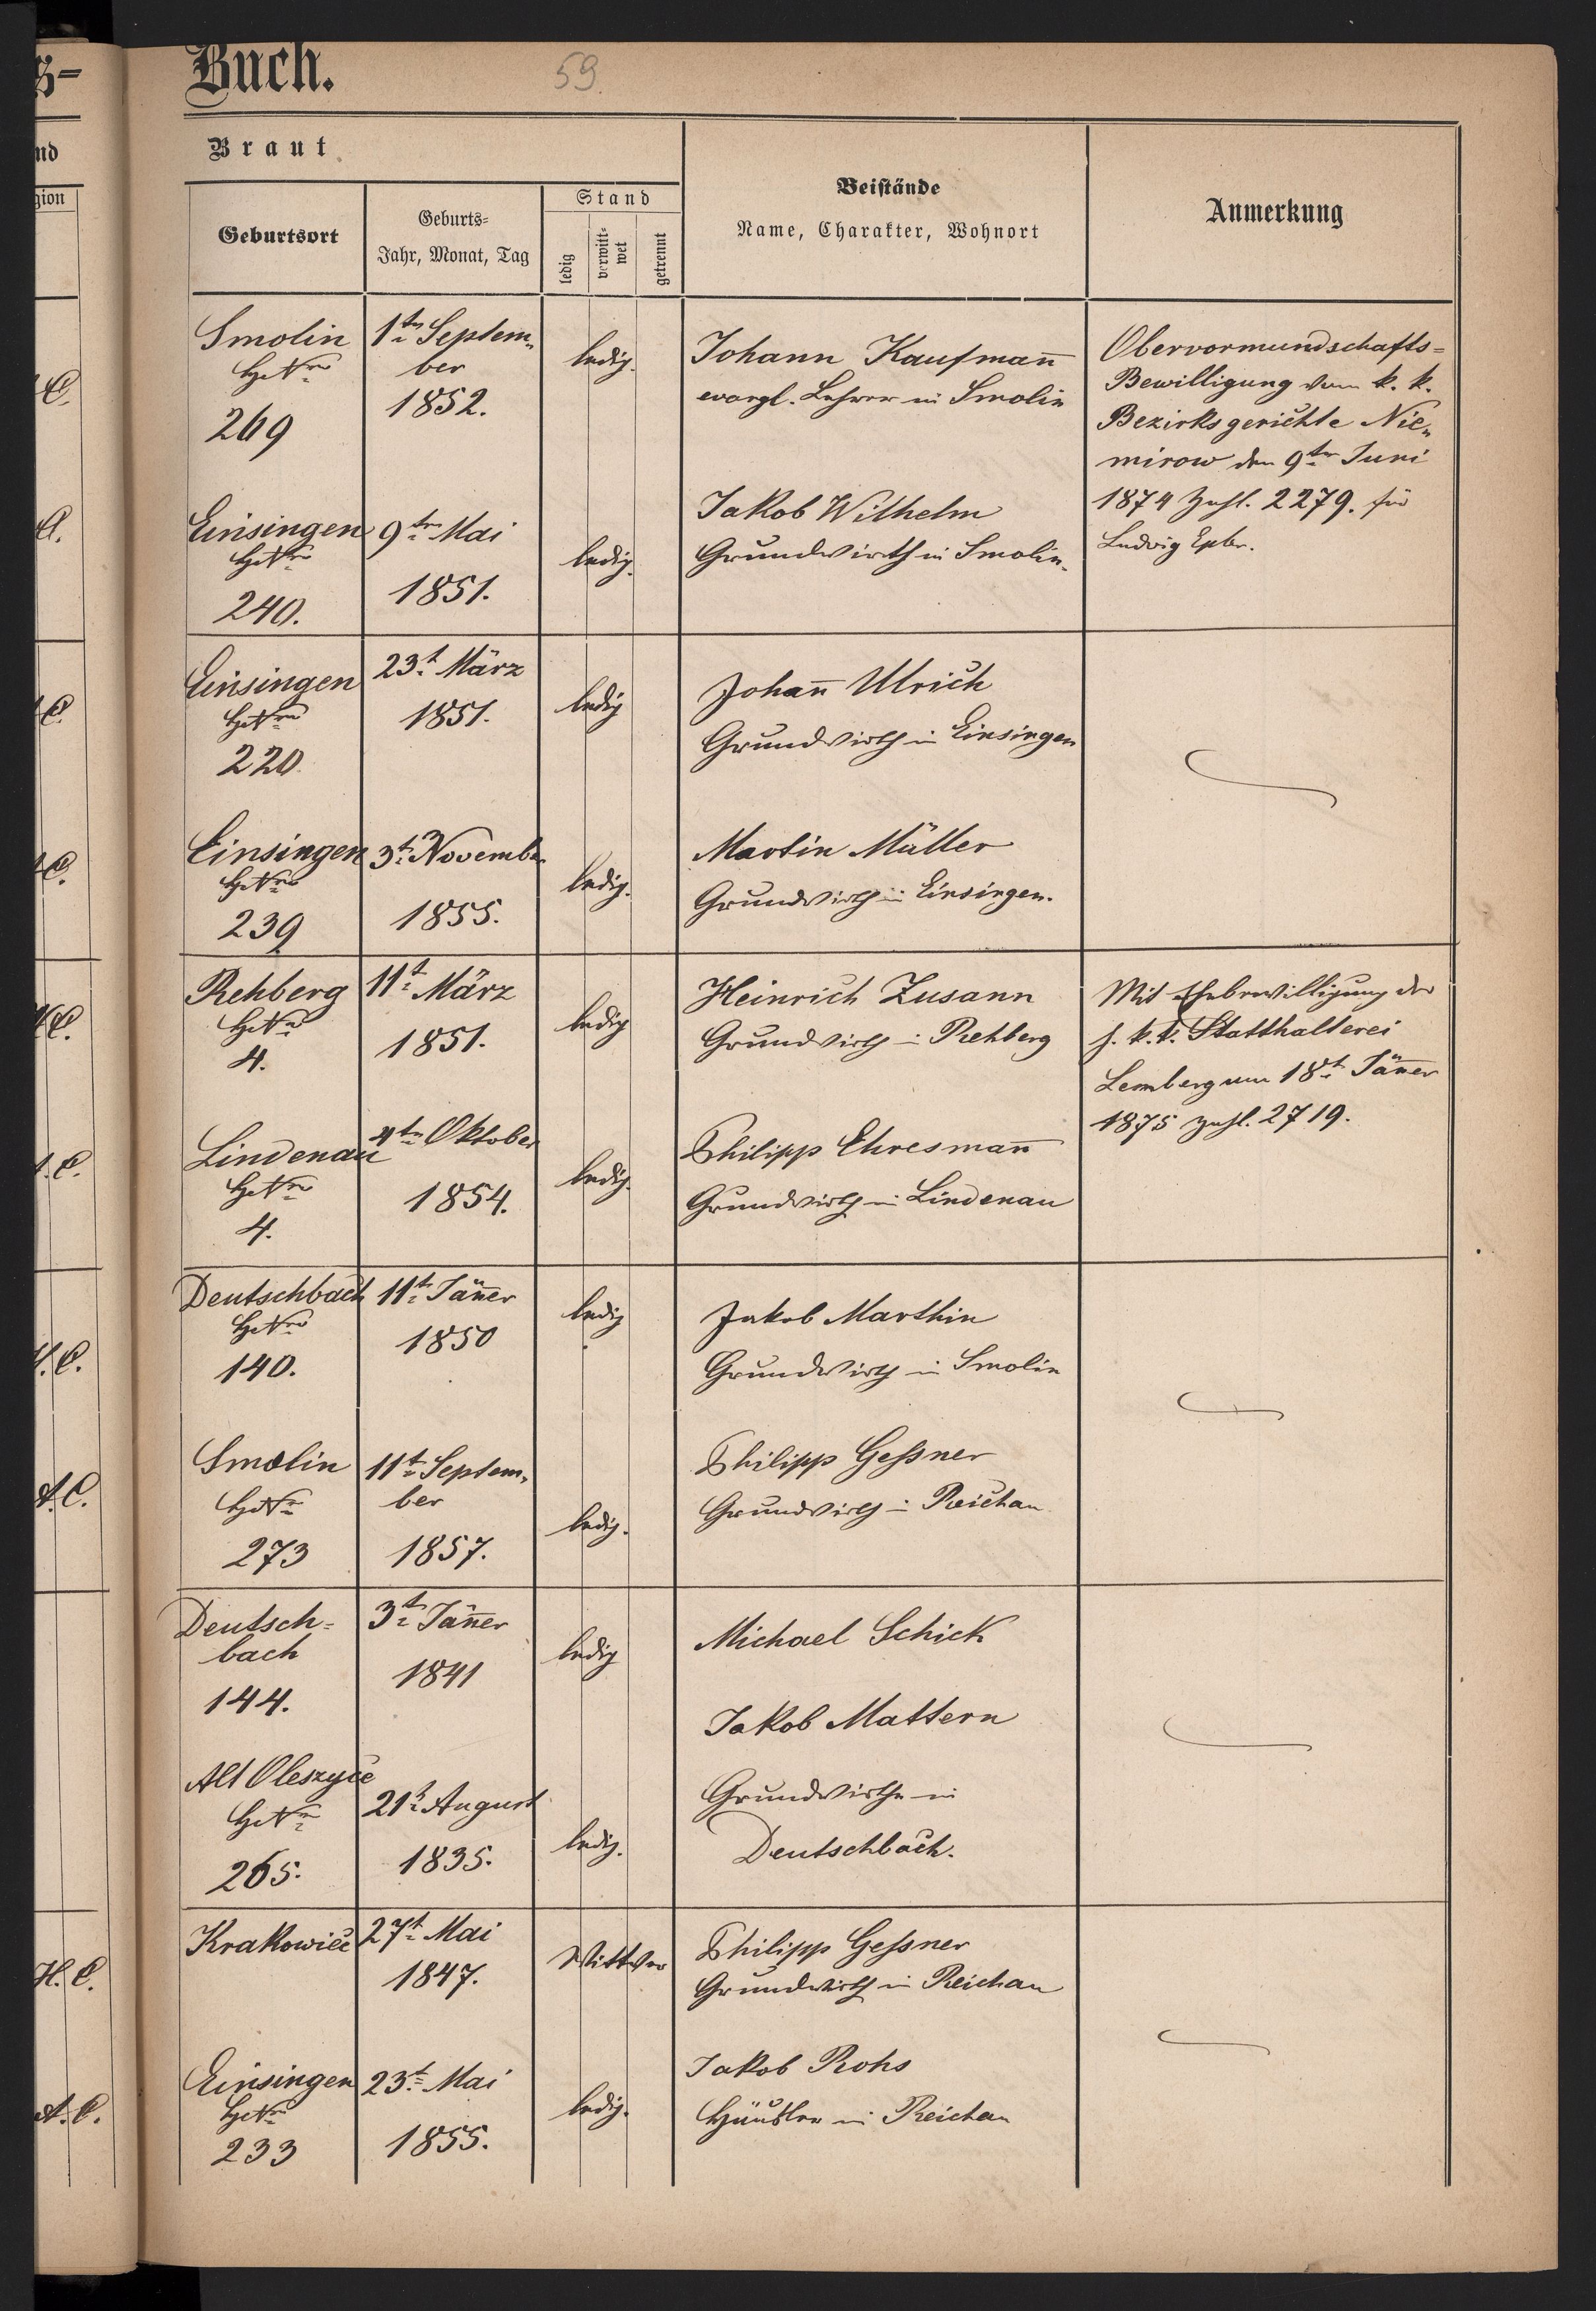 s-
Buch.
59.
nd
gion
Braut
Geburtsort
Geburts-
Jahr, Monat, Tag
Stand
ledig
verwitt-
wet
getrennt
Beistände
Name, Charakter, Wohnort
Anmerkung
Smolin
HsNro
269
1ten Septem-
ber
1852.
ledig.
Johann Kaufmann̄
evangl. Lehrer in Smolin
Obervormundschafts-
Bewilligung vom k. k.
Bezirksgerichte Nie-
mirow den 9ten Juni
1874 Zahl. 2279. für
Ludwig
Einsingen
HsNro
240.
9ten Mai
1851.
ledig.
Jakob Wilhelm
Grundwirth in Smolin.
Einsingen
HsNro
220.
23t März
1851.
ledig
Johan̄ Ulrich
Grundwirth in Einsingen
Einsingen
HsNro
239
3t November
1855.
ledig.
Martin Müller
Grundwirth in Einsingen.
Rehberg
HsNro
4.
11t März
1851.
ledig
Heinrich Zusann
Grundwirth in Rehberg
Mit Ehebewilligung der
h. k. k. Statthalterei
Lemberg vom 18t Jäner
1875 Zahl. 2719.
Lindenau
HsNro
4.
4tn Oktober
1854.
ledig.
Philipp Ehresman̄
Grundwirth in Lindenau
Deutschbach
HsNro
140.
11t Jän̄er
1850
ledig
Jakob Marthin
Grundwirth in Smolin
Smolin
HsNro
273
11t Septem-
ber
1857.
ledig.
Philipp Geßner
Grundwirth in Reichau
Deutsch-
bach
144.
3t Jän̄er
1841
ledig
Michael Schick
Jakob Mattern
Grundwirthe in
Deutschbach.
Alt Oleszyce
HsNro
265.
21t August
1835.
ledig.
Krakowiec
27t Mai
1847.
Wittwe
Philipp Geßner
Grundwirth in Reichau
Einsingen
HsNro
233
23t Mai
1855.
ledig.
Jakob Rohs
Häusler in Reichau